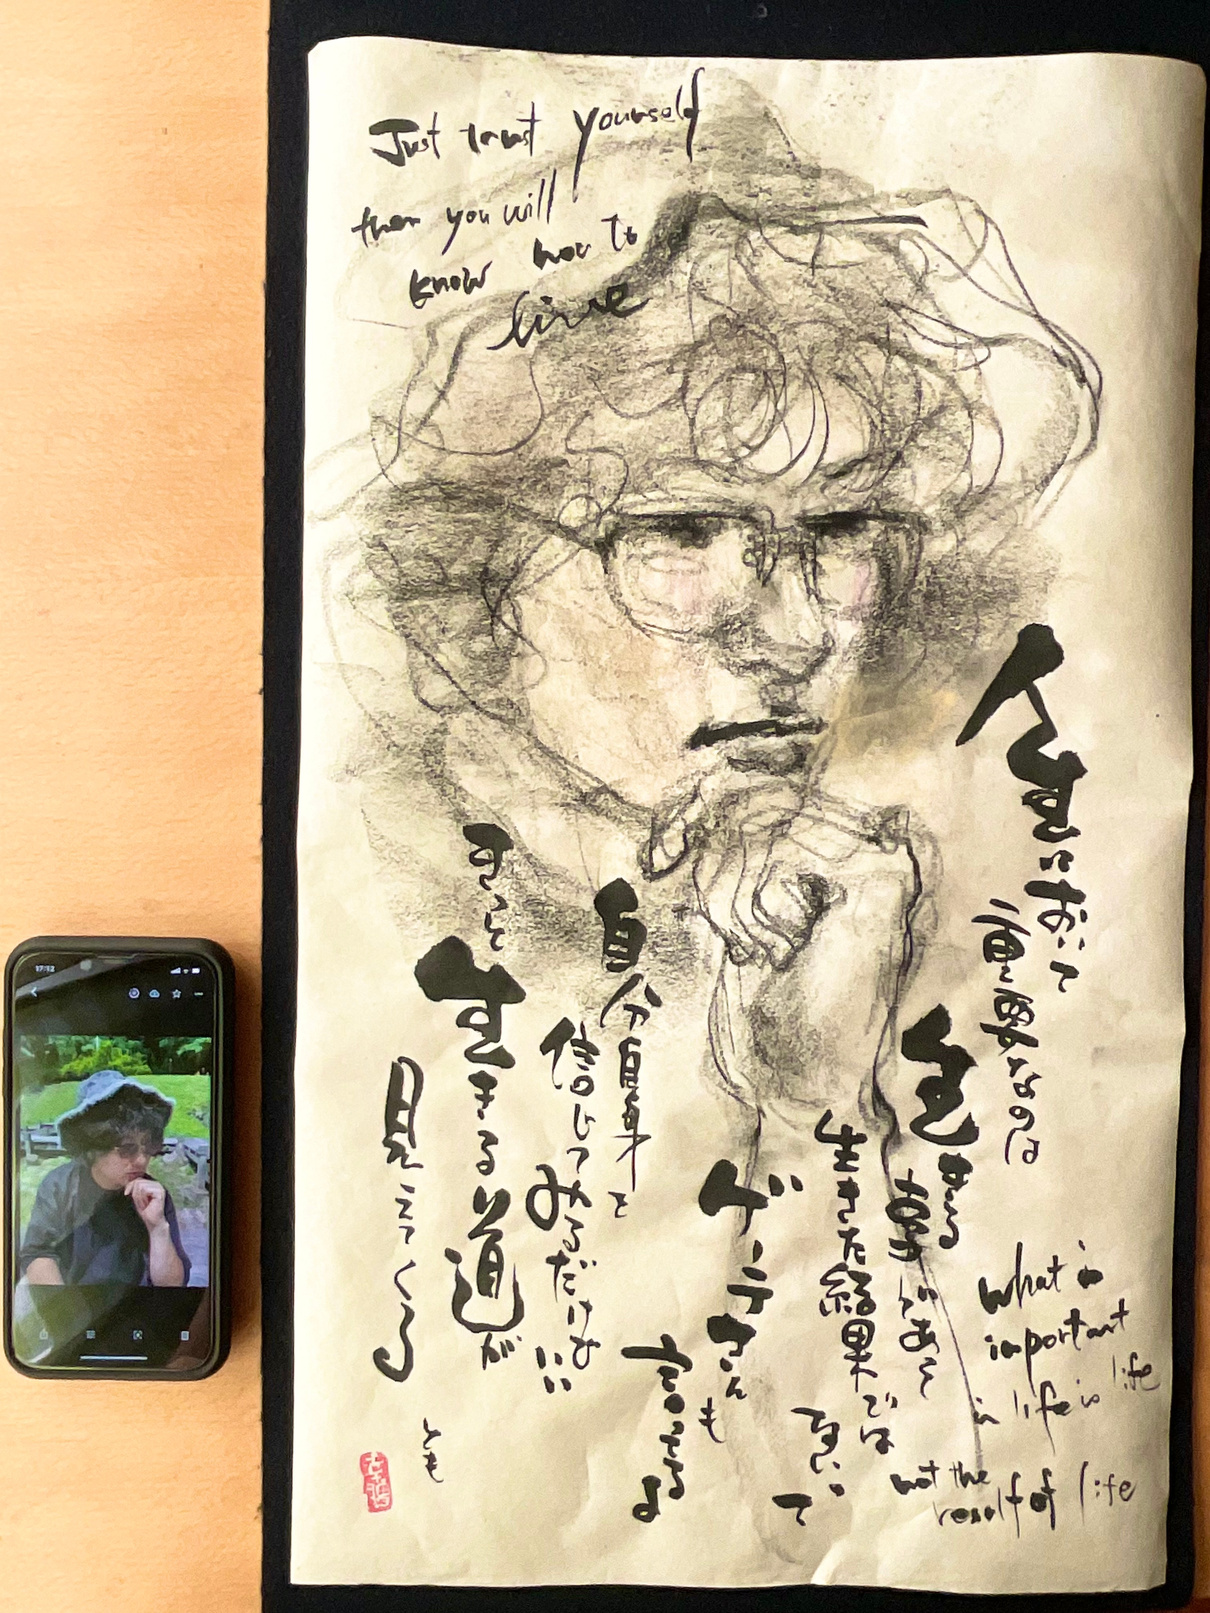 Just trust yourself
then you will
know how to
live
人生において
重要なのは
生きる
事であって
生きた結果では
無いって
ゲーテさんも
言ってるよ
自分自身を
信じてみるだけでいい
きっと
生きる道が
見えてくる
とも
What is
important
in life is life
not the
result of life